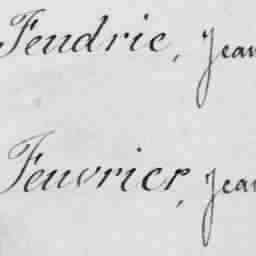 Fendric, Jean
Feuvrier, Jean